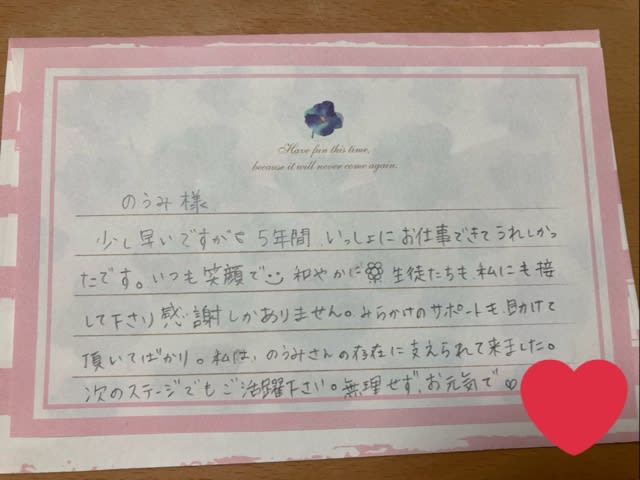 Have fun this time,
because it will never come again.
のうみ様
少し早いですが 5年間 いっしょにお仕事できてうれしかっ
たです。いつも笑顔で 和やかに 生徒たちも、私にも接
して下さり感謝しかありません。みらかけのサポートも助けて
頂いてばかり。私は、のうみさんの存在に支えられて来ました。
次のステージでもご活躍下さい。無理せず、お元気で♡